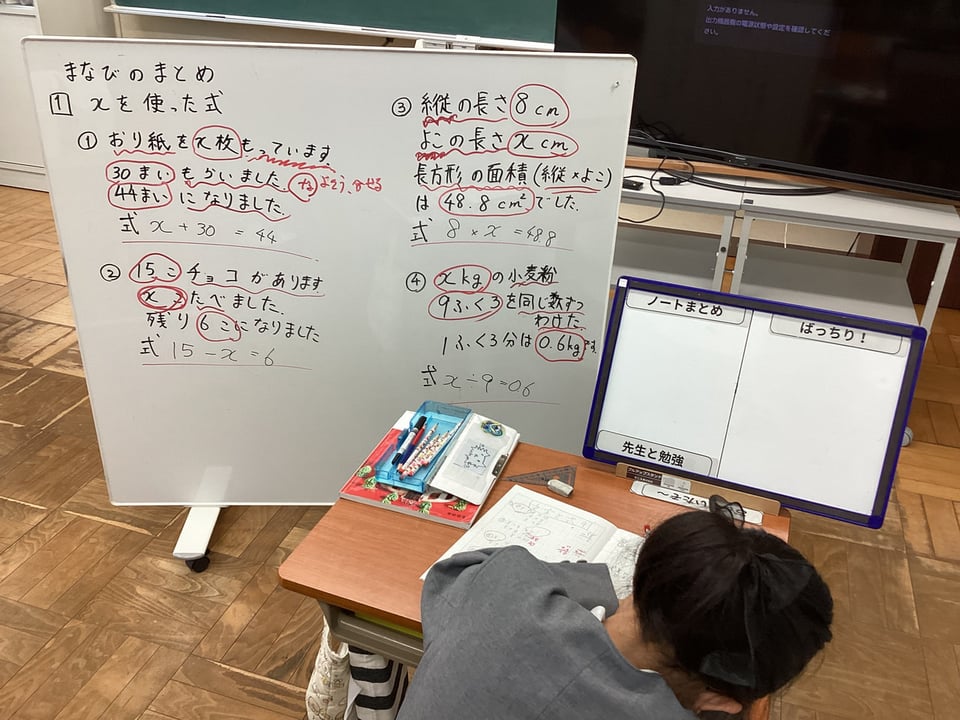 入力がありません。
出力機器側の電源状態や設定を確認してくだ
さい。
まなびのまとめ
1 xを使った式
① おり紙をx枚もっています
30まいもらいました。
44まいになりました。
式 x+30 =44
② 15こチョコがあります
xこたべました。
残り6こになりました
式 15-x=6
③ 縦の長さ8cm
よこの長さxcm
長方形の面積(縦×よこ)
は48.8cm²でした。
式 8×x=48.8
④ xkgの小麦粉
9ふくろを同じ数ずつ
わけた。
1ふくろ分は0.6kgです。
式 x÷9=06
ノートまとめ
ばっちり！
先生と勉強